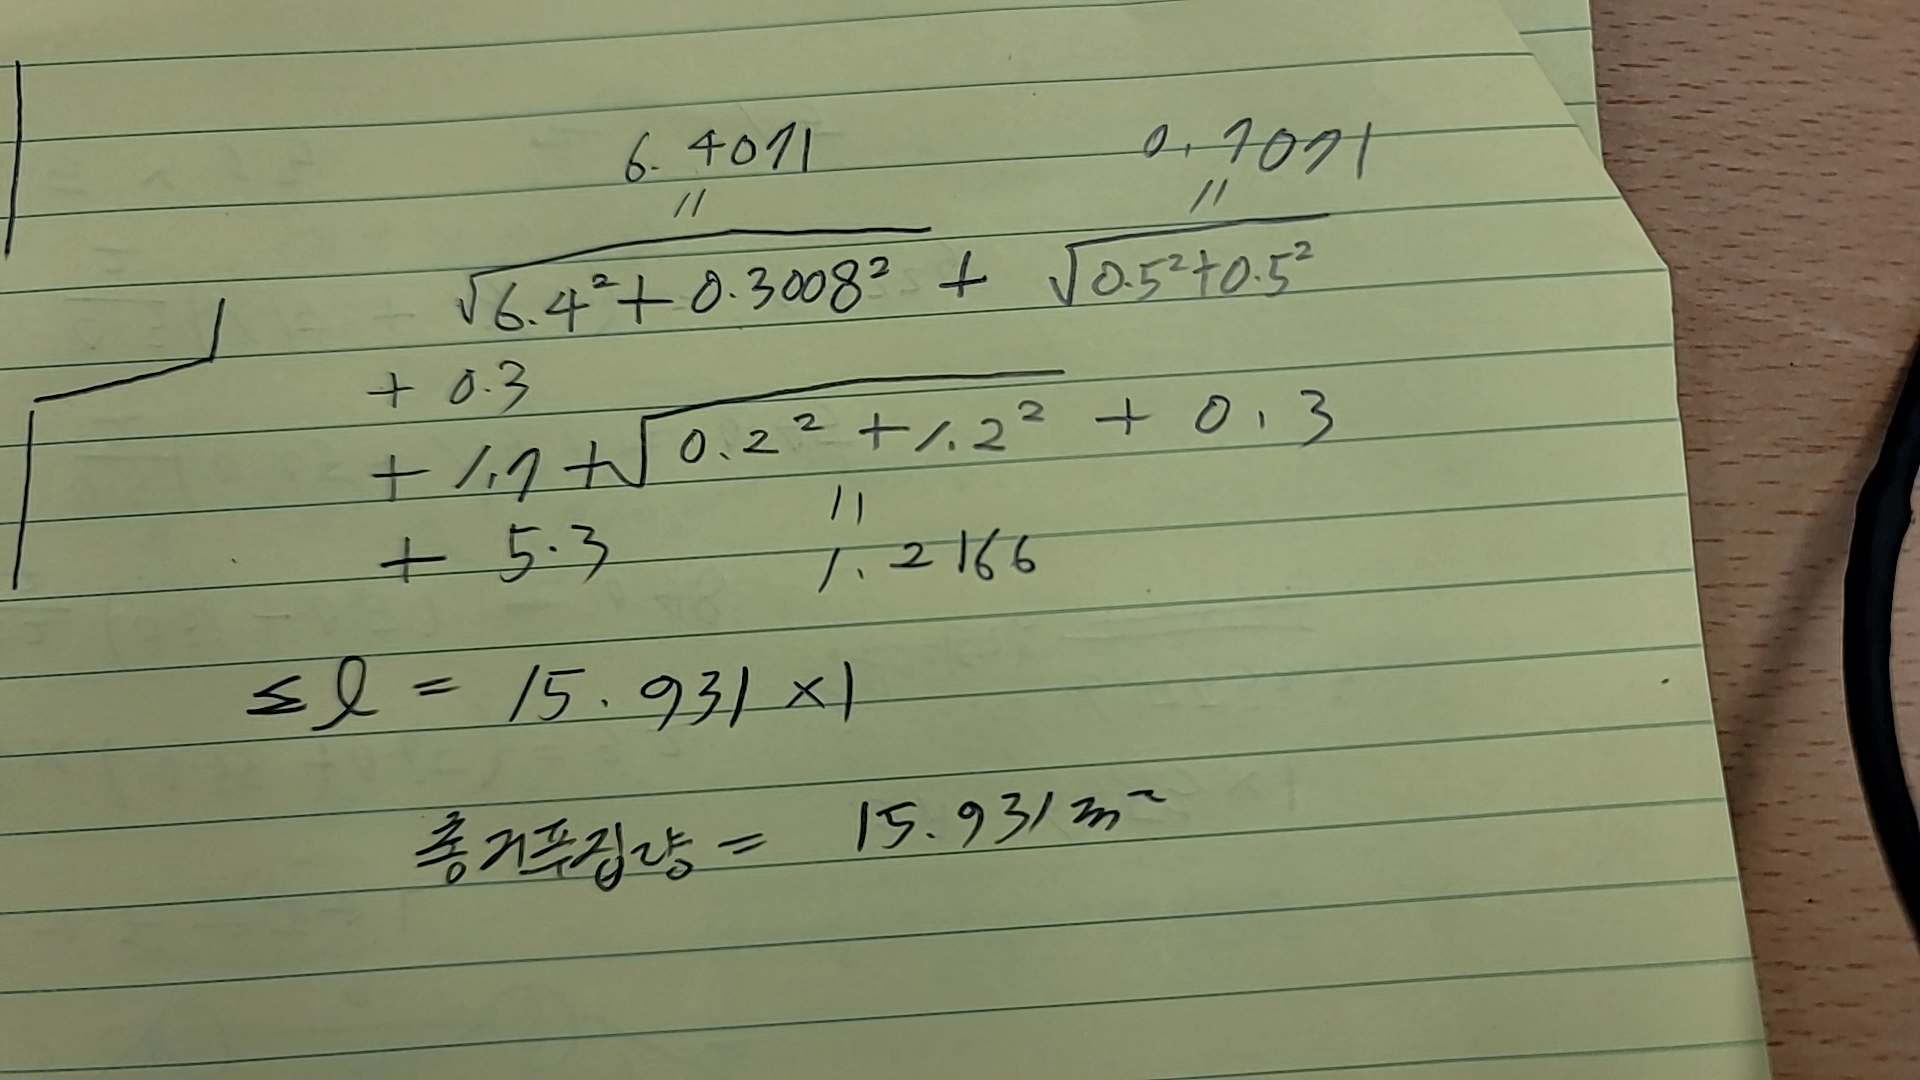 6.4071 0.7071
〃 〃
√6.4²+0.3008² + √0.5²+0.5²
+ 0.3
+ 1.7 + √0.2² + 1.2² + 0.3
〃
+ 5.3 1.2166
Σl = 15.931 × 1
총거푸집량 = 15.931 m²